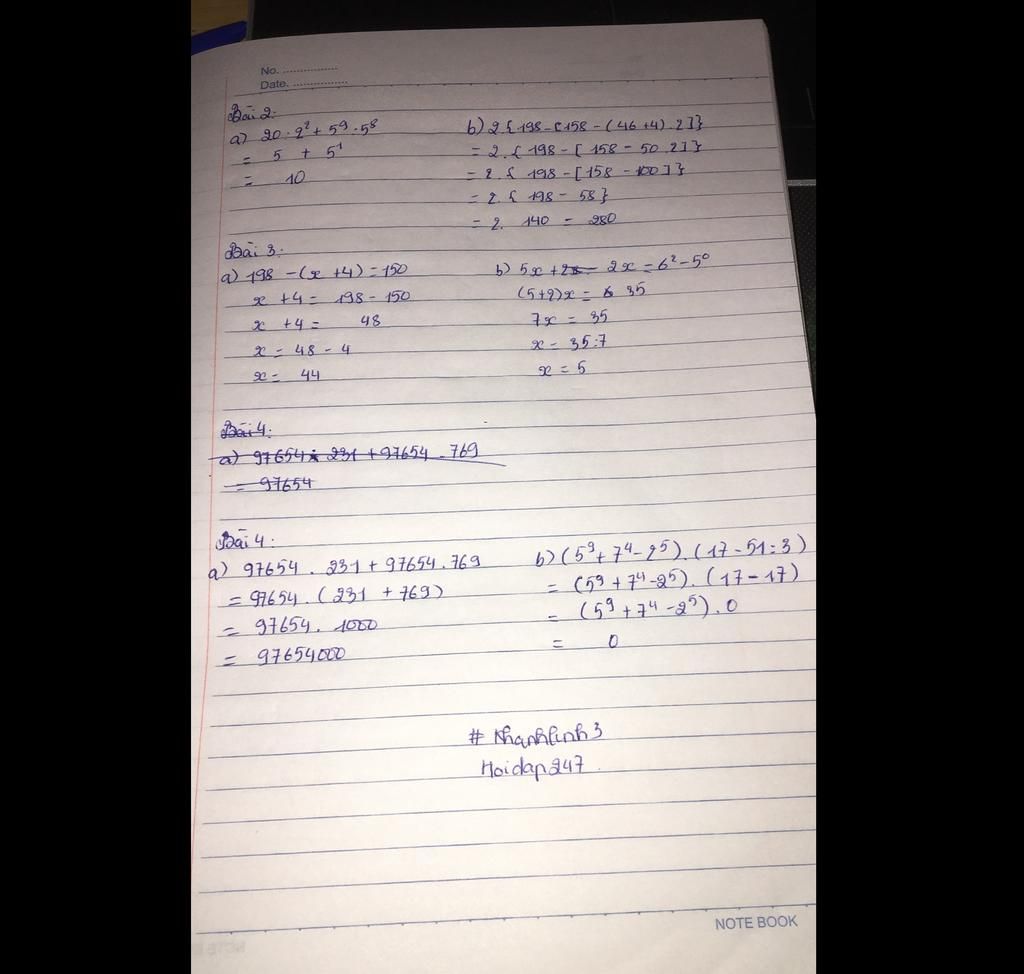 No. ................
Date. ................
Bài 2:
a) 20 : 2² + 5⁹ : 5⁸
= 5 + 5¹
= 10
b) 2{198-[158-(46+4).2]}
= 2.{198-[158-50.2]}
= 2.{198-[158-100]}
= 2.{198-58}
= 2. 140 = 280
Bài 3:
a) 198 -(x +4)=150
x +4= 198-150
x +4= 48
x = 48 - 4
x = 44
b) 5x + 2x = 6²-5⁰
(5+2)x = 35
7x = 35
x = 35:7
x = 5
Bài 4:
a) 97654 . 231 +97654 . 769
= 97654
Bài 4:
a) 97654 . 231 + 97654 . 769
= 97654 . (231 + 769)
= 97654 . 1000
= 97654000
b) (5⁹+7⁴-2⁵).(17-51:3)
= (5⁹+7⁴-2⁵).(17-17)
= (5⁹+7⁴-2⁵).0
= 0
# Khanhlinh3
Hoidap247
NOTE BOOK